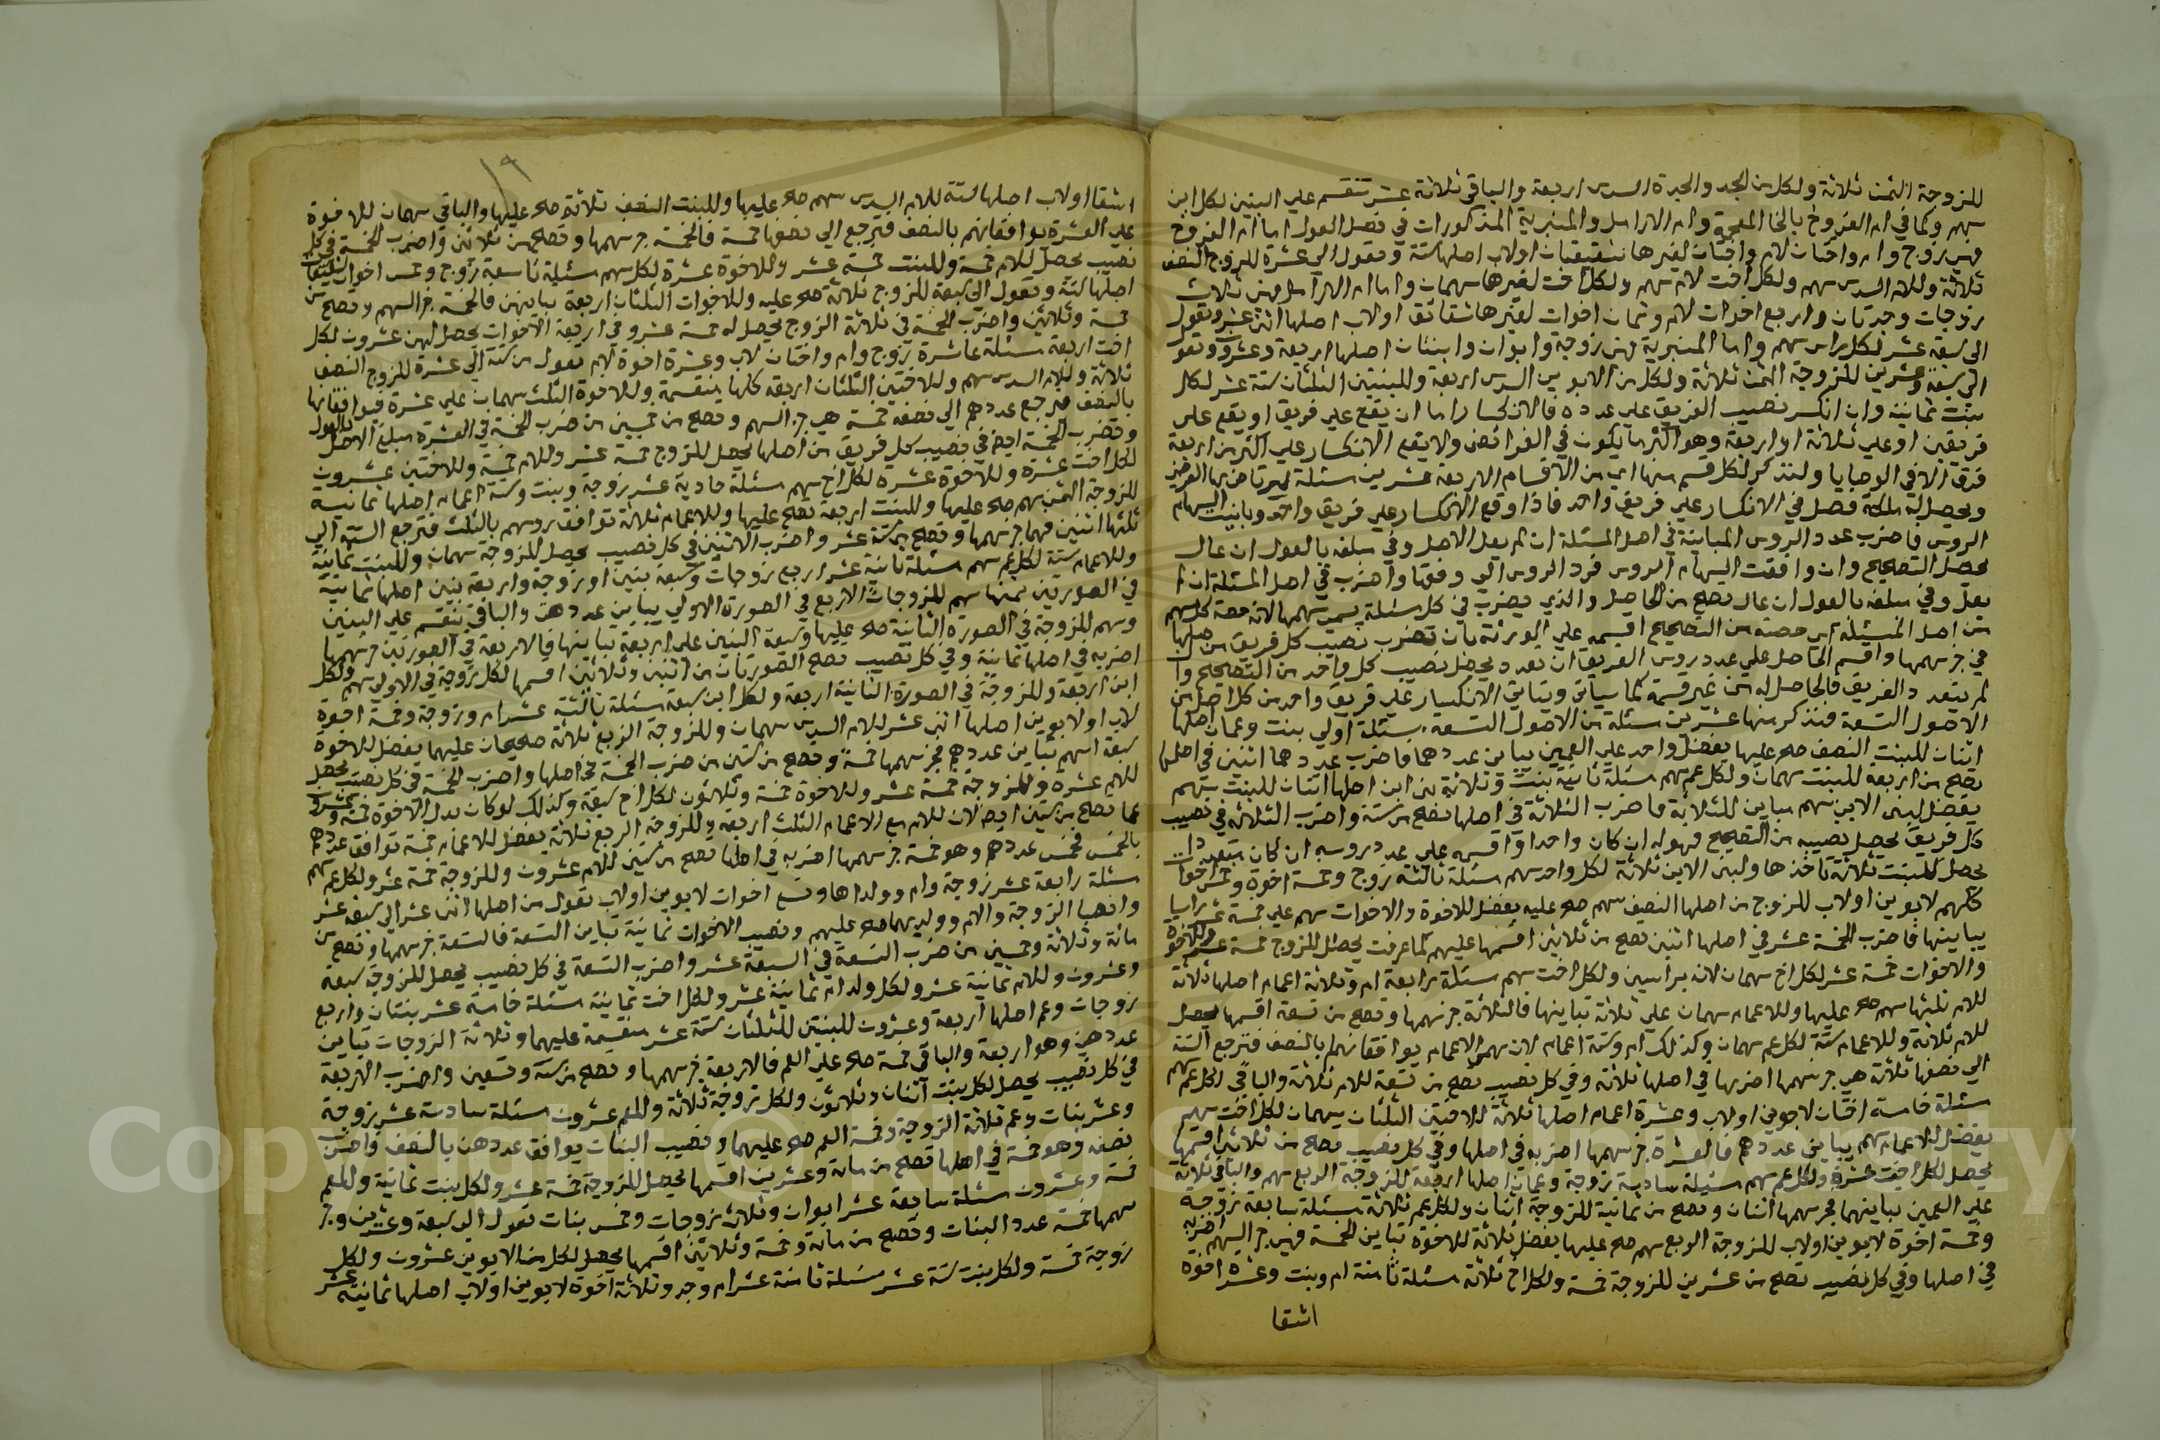 للزوجة الثمن ثلاثة ولكل من الجد والجدة السدس اربعة والباقي ثلاثة عشر تنقسم علي البنين لكل ابن
سهم وكما في ام الفروخ بالخا المعجمة وام الارامل والمنبرية المذكورات في فصل العول اما ام الفروخ
فهي زوج وام واختان لام واختان لغيرها شقيقتان اولاب اصلها ستة وتعول الي عشرة للزوج النصف
ثلاثة وللام السدس سهم ولكل اخت لام سهم ولكل اخت لغيرها سهمان واما ام الارامل فهي ثلاث
زوجات وجدتان واربع اخوات لام وثمان اخوات لغيرها شقائق اولاب اصلها اثني عشر وتعول
الي سبعة عشر لكل راس سهم واما المنبرية فهي زوجة وابوان وابنتان اصلها اربعة وعشرون وتعول
الي سبعة وعشرين للزوجة الثمن ثلاثة ولكل من الابوين السدس اربعة وللبنتين الثلثان ستة عشر لكل
بنت ثمانية وان انكسر نصيب الفريق علي عدده فالانكسار اما ان يقع علي فريق او يقع علي
فريقين او علي ثلاثة او اربعة وهو اكثر ما يكون في الفرائض ولا يقع الانكسار علي اكثر من اربعة
فرق الا في الوصايا ولنذكر لكل قسم منها اي من الاقسام الاربعة عشرين مسئلة
ويحصل له ملكة فصل في الانكسار علي فريق واحد فاذا وقع الانكسار علي فريق واحد وباينت السهام
الروس فاضرب عدد الروس المباينة في اصل المسئلة ان لم يعل الاصل وفي مبلغه بالعول ان عال
يحصل التصحيح وان وافقت السهام الروس فرد الروس الي وفقها واضرب في اصل المسئلة ان لم
يعل وفي مبلغه بالعول ان عال تصح من الحاصل والذي يضرب في كل مسئلة يسمي جزء سهمها لانه حصة كل سهم
من اصل المسئلة اي حصته من التصحيح اقسمه علي الورثة بان تضرب نصيب كل فريق من اصلها
في جزء سهمها واقسم الحاصل علي عدد روس الفريق ان تعدد يحصل نصيب كل واحد من التصحيح وان
لم يتعدد الفريق فالحاصل له من غير قسمة كما سياتي ويتاتي الانكسار علي فريق واحد من كل اصل من
الاصول التسعة فنذكر منها عشرين مسئلة من الاصول التسعة مسئلة اولي بنت وعمان اصلها
اثنان للبنت النصف صح عليها يفضل واحد علي العمين يباين عددهما فاضرب عددهما اثنين في اصلها
تصح من اربعة للبنت سهمان ولكل عم سهم مسئلة ثانية بنت وثلاثة بني ابن اصلها اثنان للبنت سهم
يفضل لبني الابن سهم مباين للثلاثة فاضرب الثلاثة في اصلها تصح من ستة واضرب الثلاثة في نصيب
كل فريق يحصل نصيبه من التصحيح فهو له ان كان واحدا واقسمه علي عدد روسه ان كان متعددا
يحصل للبنت ثلاثة تاخذها ولبني الابن ثلاثة لكل واحد سهم مسئلة ثالثة زوج وخمسة اخوة وخمس اخوات
كلهم لابوين اولاب للزوج من اصلها النصف سهم صح عليه يفضل للاخوة والاخوات سهم علي خمسة عشر راسا
يباينها فاضرب الخمسة عشر في اصلها اثنين تصح من ثلاثين اقسمها عليهم كما عرفت يحصل للزوج خمسة عشر وللاخوة
والاخوات خمسة عشر لكل اخ سهمان لانه براسين ولكل اخت سهم مسئلة رابعة ام وثلاثة اعمام اصلها ثلاثة
للام ثلثها سهم صح عليها وللاعمام سهمان علي ثلاثة تباينها فالثلاثة جزء سهمها وتصح من تسعة اقسمها يحصل
للام ثلاثة وللاعمام ستة لكل عم سهمان وكذلك ام وستة اعمام لان سهمي الاعمام يوافقانهم بالنصف فترجع الستة
الي نصفها ثلاثة هي جزء سهمها اضربها في اصلها ثلاثة وفي كل نصيب تصح من تسعة للام ثلاثة والباقي لكل عم سهم
مسئلة خامسة اختان لابوين اولاب وعشرة اعمام اصلها ثلاثة للاختين الثلثان سهمان لكل اخت سهم
يفضل للاعمام سهم يباين عددهم فالعشرة جزء سهمها اضربه في اصلها وفي كل نصيب تصح من ثلاثين اقسمها
يحصل لكل اخت عشرة ولكل عم سهم مسئلة سادسة زوجة وعمان اصلها اربعة للزوجة الربع سهم والباقي ثلاثة
علي العمين تباينهما فجزء سهمها اثنان وتصح من ثمانية للزوجة اثنان ولكل عم ثلاثة مسئلة سابعة زوجة
وخمسة اخوة لابوين اولاب للزوجة الربع سهم صح عليها يفضل ثلاثة للاخوة تباين الخمسة فهي جزء السهم اضربه
في اصلها وفي كل نصيب تصح من عشرين للزوجة خمسة ولكل اخ ثلاثة مسئلة ثامنة ام وبنت وعشرة اخوة
اشقا
١٩
اشقا اولاب اصلها ستة للام السدس سهم صح عليها وللبنت النصف ثلاثة صح عليها والباقي سهمان للاخوة
علي العشرة يوافقانهم بالنصف فترجع الي نصفها خمسة فالخمسة جزء سهمها وتصح من ثلاثين واضرب الخمسة في كل
نصيب يحصل للام خمسة وللبنت خمسة عشر وللاخوة عشرة لكل سهم مسئلة تاسعة زوج وخمس اخوات شقيقات
اصلها ستة وتعول الي سبعة للزوج ثلاثة صح عليه وللاخوات الثلثان اربعة تباينهن فالخمسة جزء السهم وتصح من
خمسة وثلاثين واضرب الخمسة في ثلاثة الزوج يحصل له خمسة عشر وفي اربعة الاخوات يحصل لهن عشرون لكل
اخت اربعة مسئلة عاشرة زوج وام واختان لاب وعشرة اخوة لام تعول من ستة الي عشرة للزوج النصف
ثلاثة وللام السدس سهم وللاختين الثلثان اربعة كلها منقسمة وللاخوة الثلث سهمان علي عشرة فيوافقانها
بالنصف فترجع عددهم الي نصفه خمسة هي جزء السهم وتصح من خمسين من ضرب الخمسة في العشرة مبلغ الاصل بالعول
وتضرب الخمسة ايضا في نصيب كل فريق من اصلها يحصل للزوج خمسة عشر وللام خمسة وللاختين عشرون
لكل اخت عشرة وللاخوة عشرة لكل اخ سهم مسئلة حادية عشر زوجة وبنت وستة اعمام اصلها ثمانية
للزوجة الثمن سهم صح عليها وللبنت اربعة تصح عليها وللاعمام ثلاثة توافق روسهم بالثلث فترجع الستة الي
ثلثها اثنين فهما جزء سهمها وتصح من ستة عشر واضرب الاثنين في كل نصيب يحصل للزوجة سهمان وللبنت ثمانية
وللاعمام ستة لكل عم سهم مسئلة ثانية عشر اربع زوجات وسبعة بنين او زوجة واربعة بنين اصلها ثمانية
في الصورتين ثمنها سهم للزوجات الاربع في الصورة الاولي يباين عددهن والباقي ينقسم علي البنين
وسهم للزوجة في الصورة الثانية صح عليها وسبعة البنين علي اربعة تباينها فالاربعة في الصورتين جزء سهمها
اضربه في اصلها ثمانية وفي كل نصيب تصح الصورتان من اثنين وثلاثين اقسمها لكل زوجة في الاولي سهم ولكل
ابن اربعة وللزوجة في الصورة الثانية اربعة ولكل ابن سبعة مسئلة ثالثة عشر ام وزوجة وخمسة اخوة
لاب اولابوين اصلها اثني عشر للام السدس سهمان وللزوجة الربع ثلاثة صحيحان عليهما يفضل للاخوة
سبعة اسهم تباين عددهم فجزء سهمها خمسة وتصح من ستين من ضرب الخمسة في اصلها واضرب الخمسة في كل نصيب يحصل
للام عشرة وللزوجة خمسة عشر وللاخوة خمسة وثلاثون لكل اخ سبعة وكذلك لو كان بدل الاخوة خمسة وعشرون
عما تصح من ستين ايضا لان للام مع الاعمام الثلث اربعة وللزوجة الربع ثلاثة يفضل للاعمام خمسة توافق عددهم
بالخمس فخمس عددهم وهو خمسة جزء سهمها اضربه في اصلها تصح من ستين للام عشرون وللزوجة خمسة عشر ولكل عم سهم
مسئلة رابعة عشر زوجة وام وولداها وتسع اخوات لابوين اولاب تعول من اصلها اثني عشر الي سبعة عشر
وانصبا الزوجة والام وولديها صح عليهم ونصيب الاخوات ثمانية تباين التسعة فالتسعة جزء سهمها وتصح من
مائة وثلاثة وخمسين من ضرب التسعة في السبعة عشر واضرب التسعة في كل نصيب يحصل للزوجة سبعة
وعشرون وللام ثمانية عشر ولكل ولد ام ثمانية عشر ولكل اخت ثمانية مسئلة خامسة عشر بنتان واربع
زوجات وعم اصلها اربعة وعشرون للبنتين الثلثان ستة عشر منقسمة عليهما وثلاثة الزوجات تباين
عددهن وهو اربعة والباقي خمسة صح علي العم فالاربعة جزء سهمها وتصح من ستة وتسعين واضرب الاربعة
في كل نصيب يحصل لكل بنت اثنان وثلاثون ولكل زوجة ثلاثة وللعم عشرون مسئلة سادسة عشر زوجة
وعشر بنات وعم ثلاثة الزوجة وخمسة العم صح عليهما ونصيب البنات يوافق عددهن بالنصف فاضرب
نصفه وهو خمسة في اصلها تصح من مائة وعشرين اقسمها يحصل للزوجة خمسة عشر ولكل بنت ثمانية وللعم
خمسة وعشرون مسئلة سابعة عشر ابوان وثلاث زوجات وخمس بنات تعول الي سبعة وعشرين وجزء
سهمها خمسة عدد البنات وتصح من مائة وخمسة وثلاثين اقسمها يحصل لكل من الابوين عشرون ولكل
زوجة خمسة ولكل بنت ستة عشر مسئلة ثامنة عشر ام وجد وثلاثة اخوة لابوين اولاب اصلها ثمانية عشر
Copyright © King Saud University